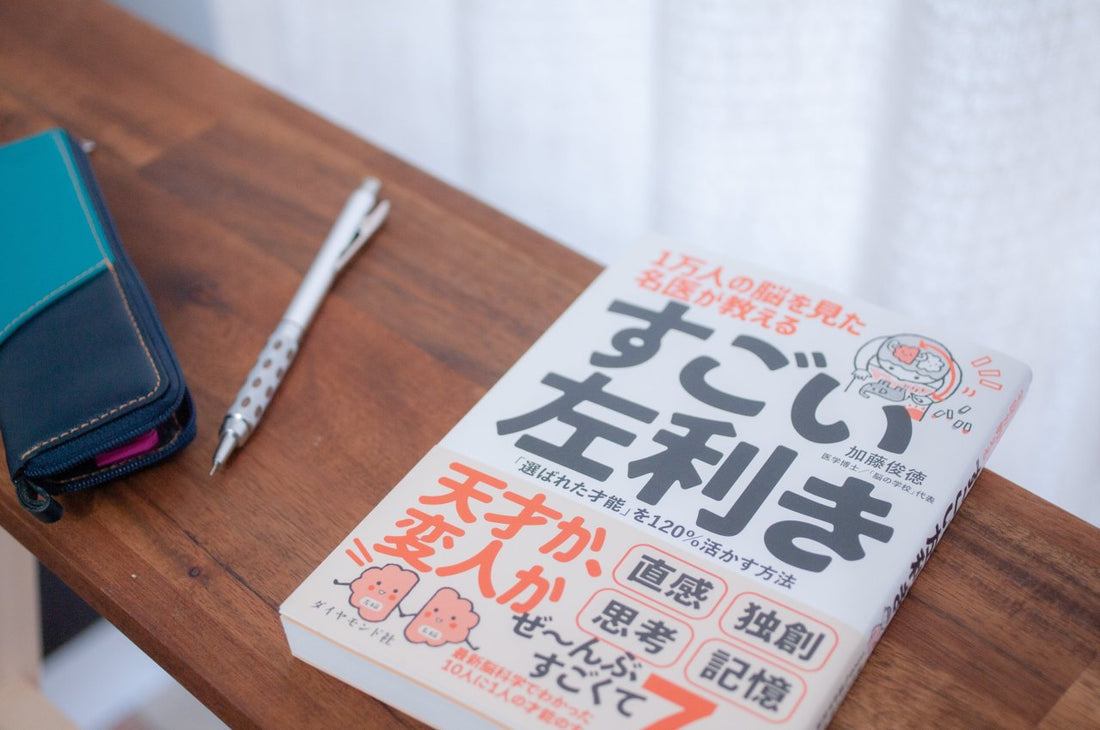 1万人の脳を見た
名医が教える
すごい
左利き
加藤俊徳
医学博士/「脳の学校」代表
「選ばれた才能」を120%活かす方法
天才か、
変人か
直感
独創
思考
記憶
ぜ〜んぶ
すごくて
右脳
左脳
ダイヤモンド社
最新脳科学でわかった
10人に1人の才能の
7